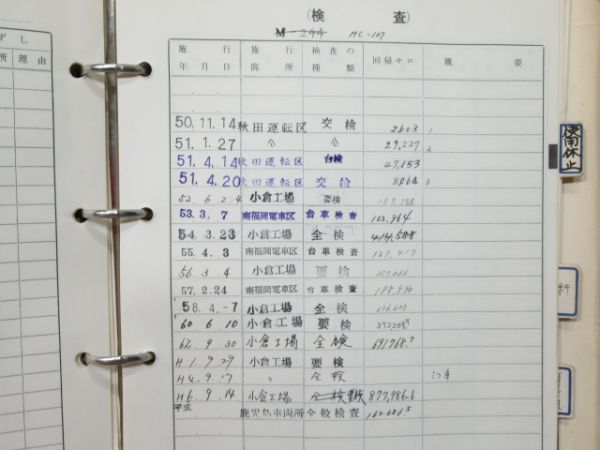 (検 査)
M-244 MC-107
施行年月日 施行箇所 検査の種類 回帰キロ 概要
50.11.14 秋田運転区 交検 2603 1
51.1.27 〃 〃 29,227 2
51.4.14 秋田運転区 台検 47,153
51.4.20 秋田運転区 交検 3
52.6.24 小倉工場 要検
53.3.7 南福岡電車区 台車検査 102,964
54.3.23 小倉工場 全検 414,588
55.4.3 南福岡電車区 台車検査
56.3.4 小倉工場 要検
57.2.24 南福岡電車区 台車検査
58.4.-7 小倉工場 全検
60 6 10 小倉工場 要検
62.9 30 小倉工場 全検 691,968.9
H1.9.29 小倉工場 要検
H4.9.17 〃 全般
H6.9.14 小倉工場 877,986.6
平成 鹿児島車両所 全般検査
ずし
所 理由
使用休止